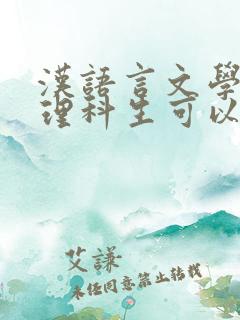 漢語言文學
理科生可以
艾謙
未经同意禁止转载